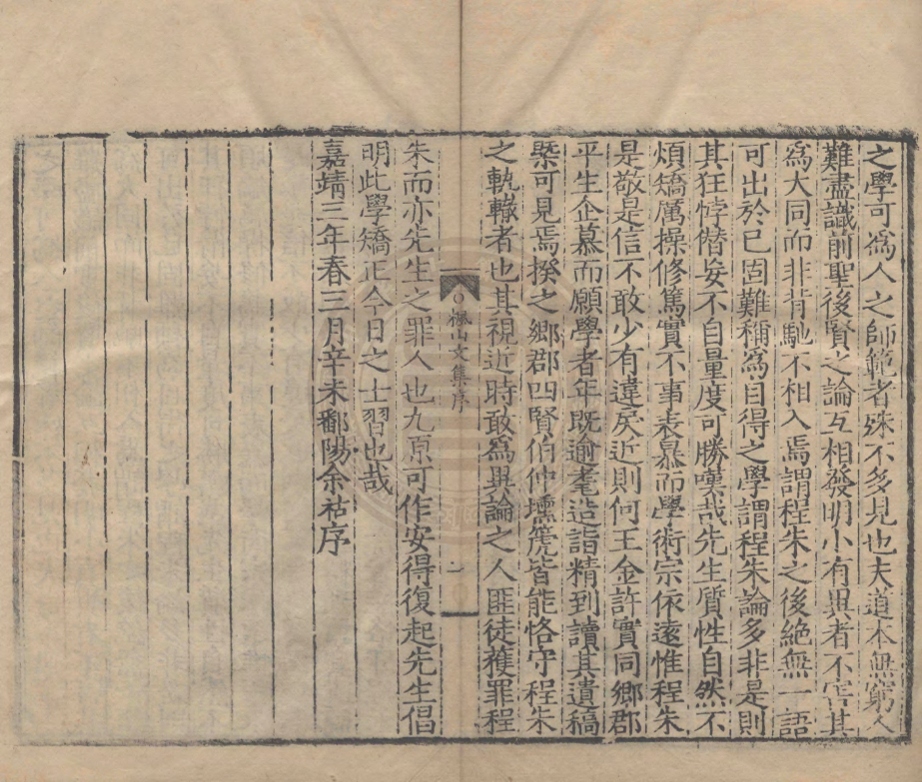 之學可為人之師範者殊不多見也夫道本無窮人
難盡識前聖後賢之論互相發明小有異者不害其
為大同而非背馳不相入焉謂程朱之後絶無一語
可出於已固難稱為自得之學謂程朱論多非是則
其狂悖僣妄不自量度可勝嘆哉先生質性自然不
煩矯厲操修篤實不事表暴而學術宗依遠惟程朱
是敬是信不敢少有違戾近則何王金許實同鄉郡
平生企慕而願學者年既逾耄造詣精到讀其遺稿
槩可見焉揆之鄉郡四賢伯仲壎篪皆能恪守程朱
之軌轍者也其視近時敢為異論之人匪徒獲罪程
楓山文集序
一
朱而亦先生之罪人也九原可作安得復起先生倡
明此學矯正今日之士習也哉
嘉靖三年春三月辛未鄱陽余祜序